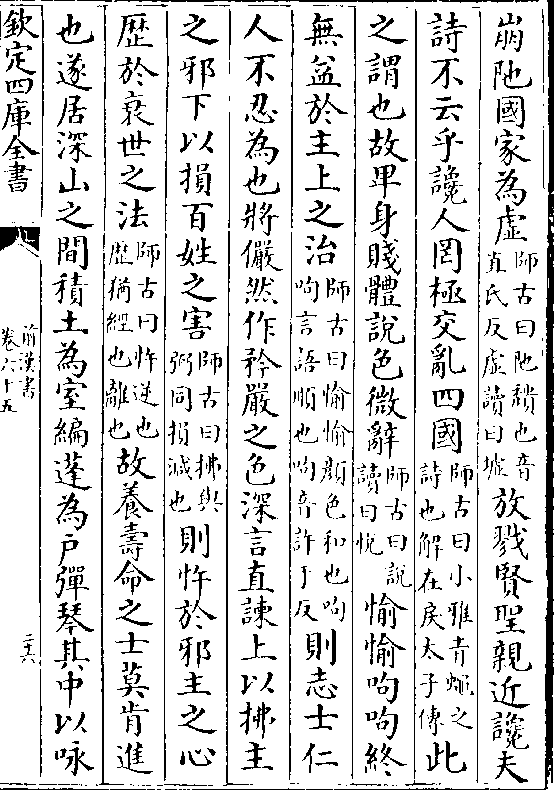 崩阤國家為虛師古曰阤頹也音直氏反虛讀曰墟放戮賢聖親近讒夫
詩不云乎讒人罔極交亂四國師古曰小雅青蠅之詩也解在戾太子傳此
之謂也故卑身賤體說色微辭師古曰說讀曰悅愉愉呴呴終
無益於主上之治師古曰愉愉顔色和也呴呴言語順也呴音許于反則志士仁
人不忍為也將儼然作矜嚴之色深言直諫上以拂主
之邪下以損百姓之害師古曰拂與弼同損減也則忤於邪主之心
歴於衰世之法師古曰忤逆也歴猶經也離也故養壽命之士莫肯進
也遂居深山之間積土為室編蓬為戶彈琴其中以咏
欽定四庫全書
前漢書
卷六十五
二十六